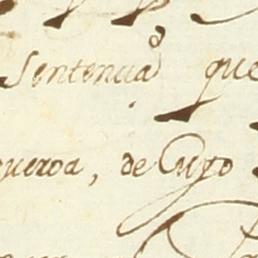 Sentencia que
gueroa, de Cuyo